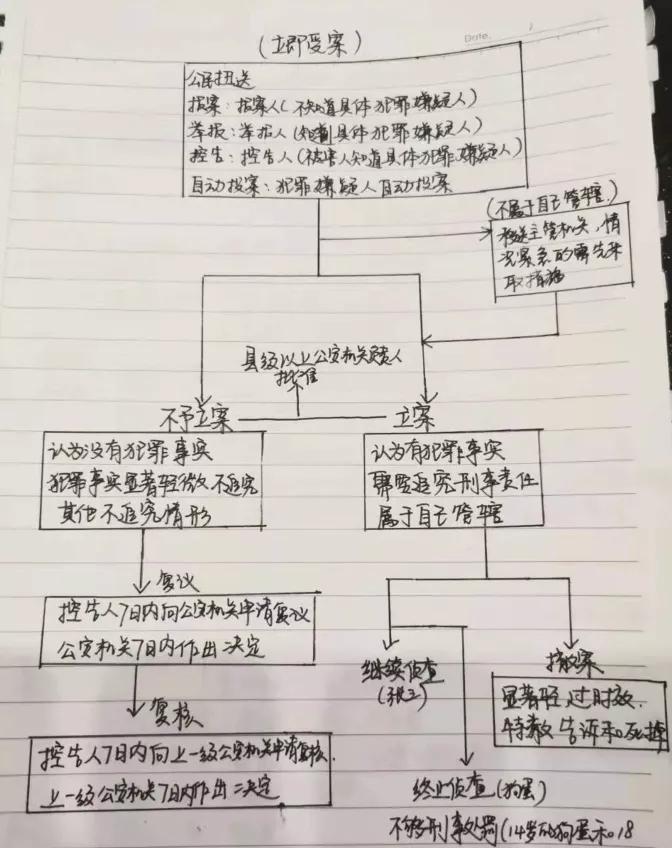 Date.
(立即受案)
公民扭送
报案：报案人(不知道具体犯罪嫌疑人)
举报：举报人(知道具体犯罪嫌疑人)
控告：控告人(被害人知道具体犯罪嫌疑人)
自动投案：犯罪嫌疑人自动投案
(不属于自己管辖)
移送主管机关，情
况紧急的需先采
取措施
县级以上公安机关负责人
批准
不予立案
立案
认为没有犯罪事实
犯罪事实显著轻微不追究
其他不追究情形
认为有犯罪事实
需要追究刑事责任
属于自己管辖
复议
控告人7日内向公安机关申请复议
公安机关7日内作出决定
复核
控告人7日内向上一级公安机关申请复核.
上一级公安机关7日内作出决定
继续侦查
(张三)
撤案
显著轻，过时效.
特赦告诉和死掉
终止侦查(狗蛋)
不够刑事处罚(14岁的狗蛋和18